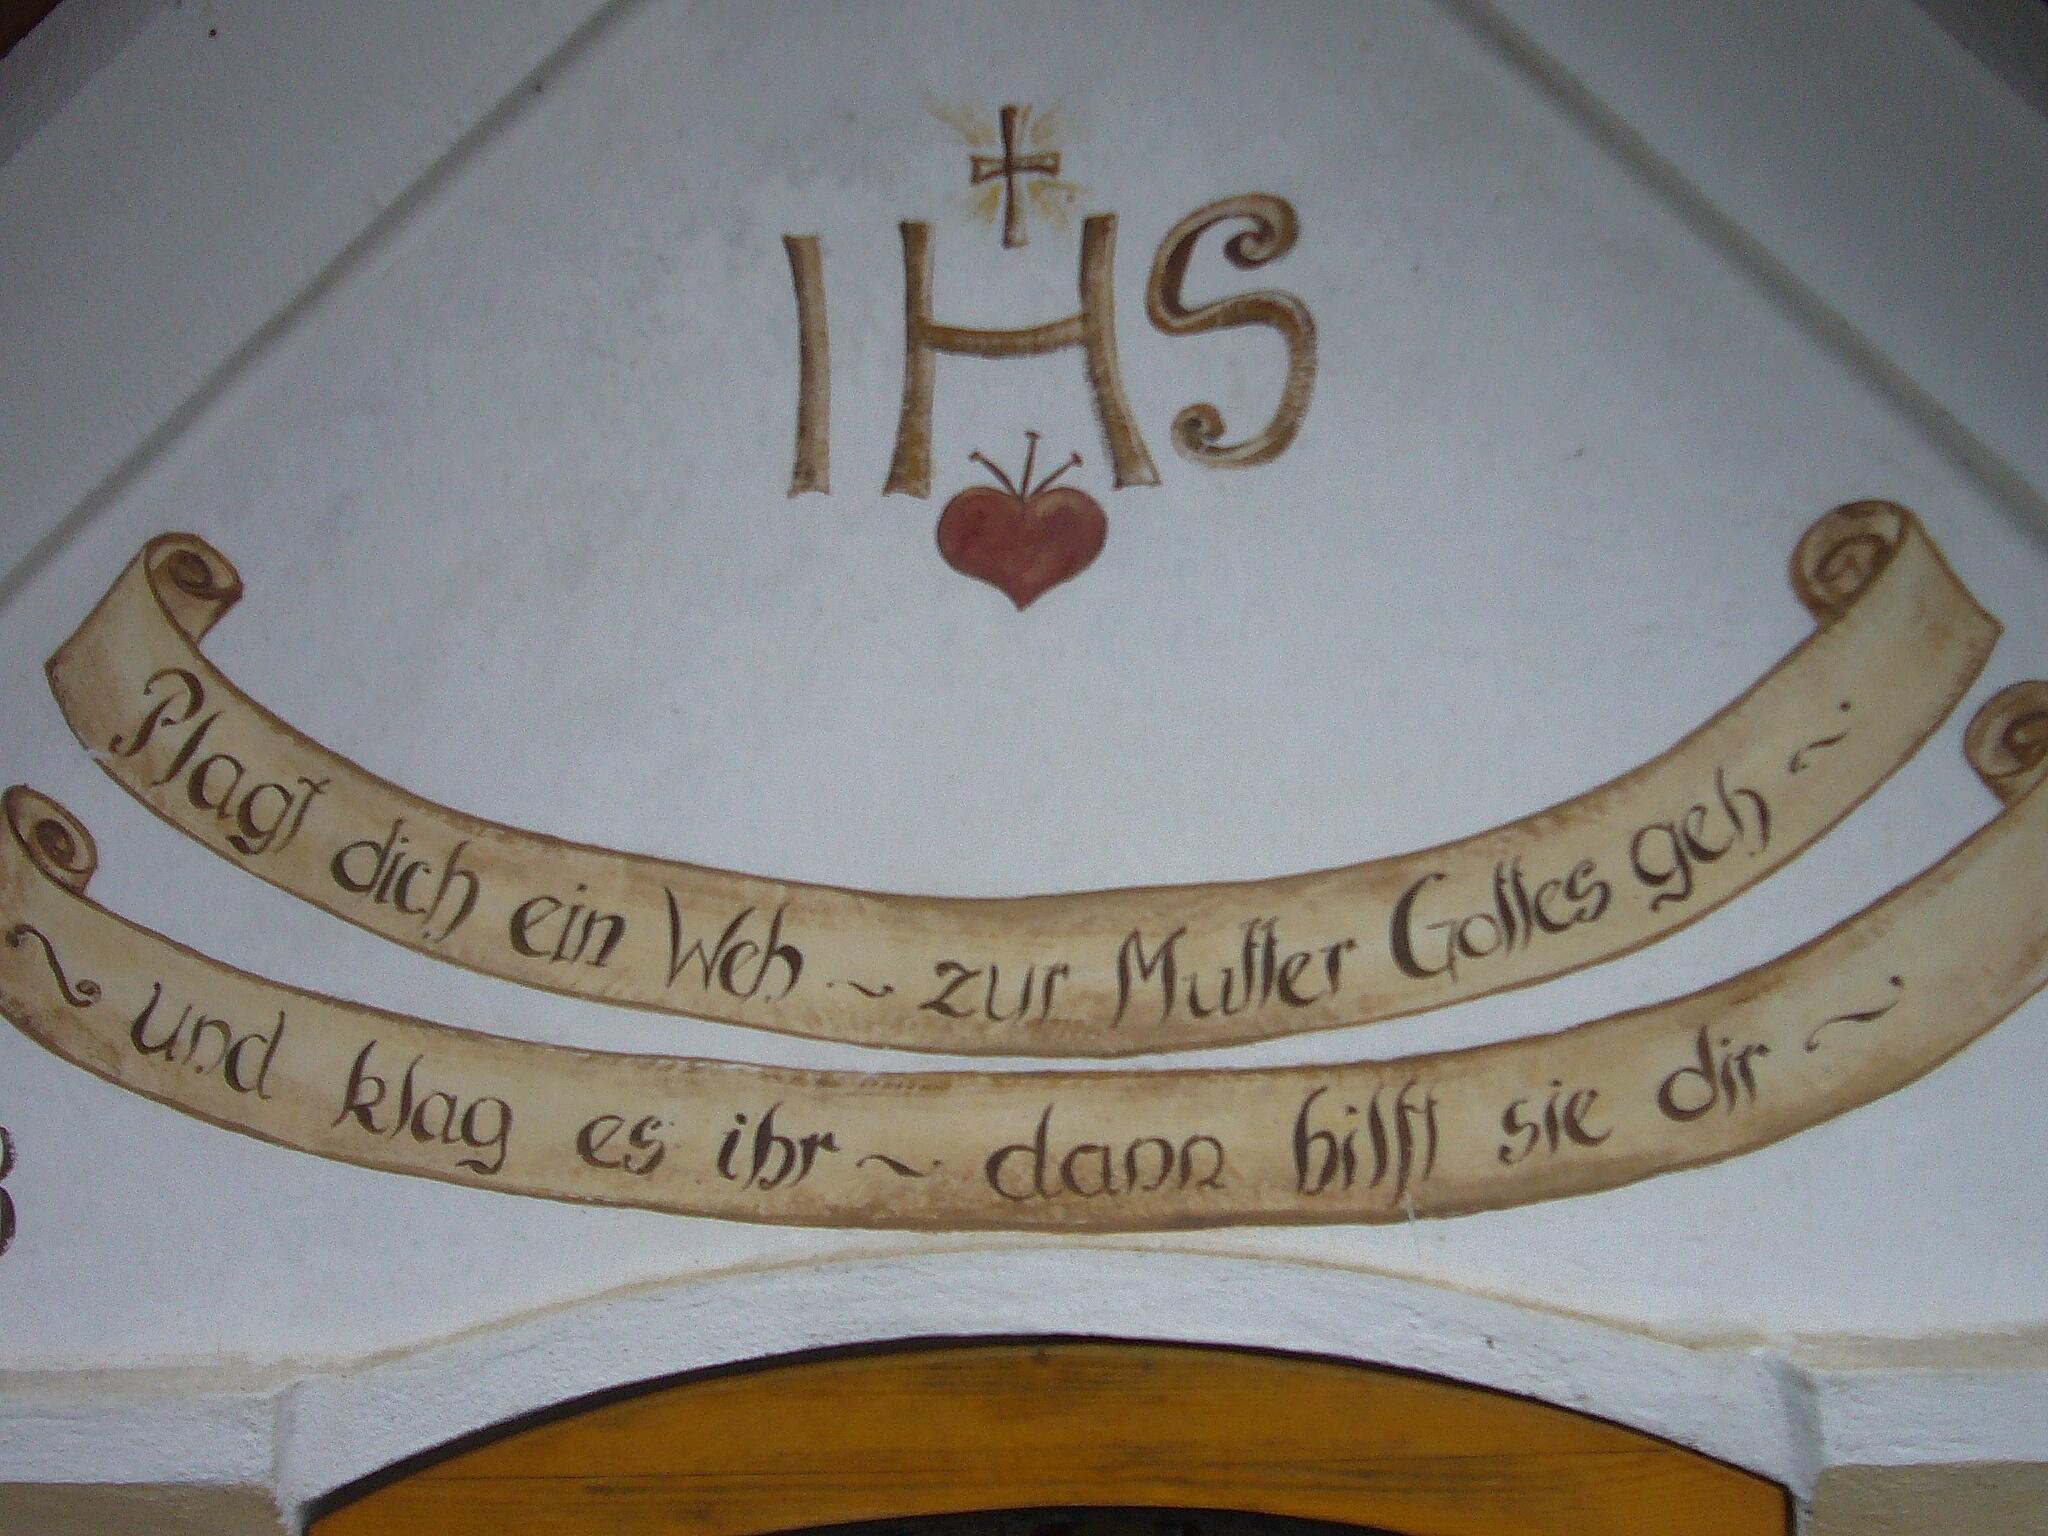 IHS
Plagt dich ein Weh ~ zur Mutter Gottes geh ~
~ und klag es ihr ~ dann hilft sie dir ~